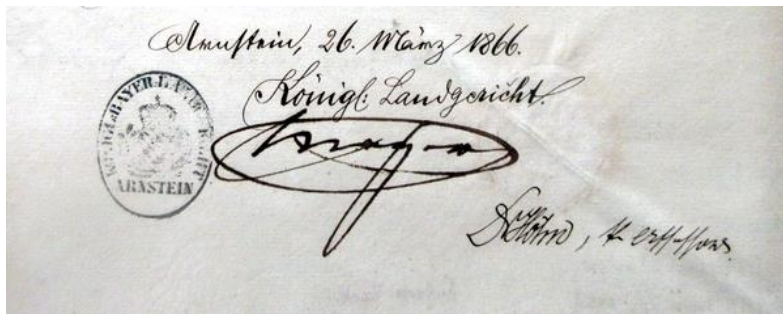 Arnstein, 26. März 1866.
Königl. Landgericht.
KÖNIGL. BAYER. LANDGERICHT
ARNSTEIN